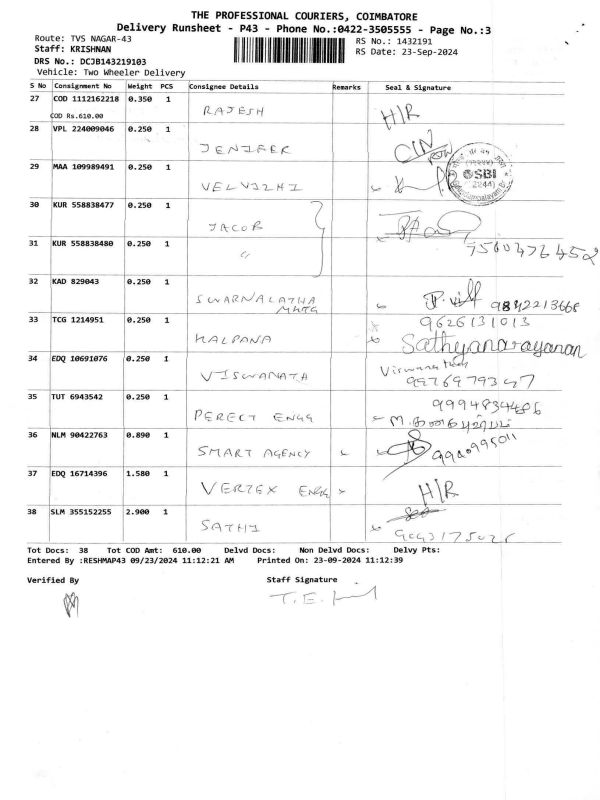 THE PROFESSIONAL COURIERS, COIMBATORE
Delivery Runsheet - P43 - Phone No.:0422-3505555 - Page No.:3
Route: TVS NAGAR-43
RS No.: 1432191
Staff: KRISHNAN
RS Date: 23-Sep-2024
DRS No.: DCJB143219103
Vehicle: Two Wheeler Delivery
S No Consignment No Weight PCS Consignee Details Remarks Seal & Signature
27 COD 1112162218 0.350 1 RAJESH H/R
COD Rs.610.00
28 VPL 224009046 0.250 1 JENIFER
29 MAA 109989491 0.250 1 VELVIZHI SBI
30 KUR 558838477 0.250 1 JACOB
31 KUR 558838480 0.250 1 〃 7560476452
32 KAD 829043 0.250 1 SWARNALATHA 9842213668
MKTG
33 TCG 1214951 0.250 1 KALPANA 9626131013
Sathyanarayanan
34 EDQ 10691076 0.250 1 VISWANATH
9976979347
35 TUT 6943542 0.250 1 PERECT ENGG 9994834486
36 NLM 90422763 0.890 1 SMART AGENCY
37 EDQ 16714396 1.580 1 VERTEX ENGG H/R
38 SLM 355152255 2.900 1 SATHI
Tot Docs: 38 Tot COD Amt: 610.00 Delvd Docs: Non Delvd Docs: Delvy Pts:
Entered By :RESHMAP43 09/23/2024 11:12:21 AM Printed On: 23-09-2024 11:12:39
Verified By Staff Signature